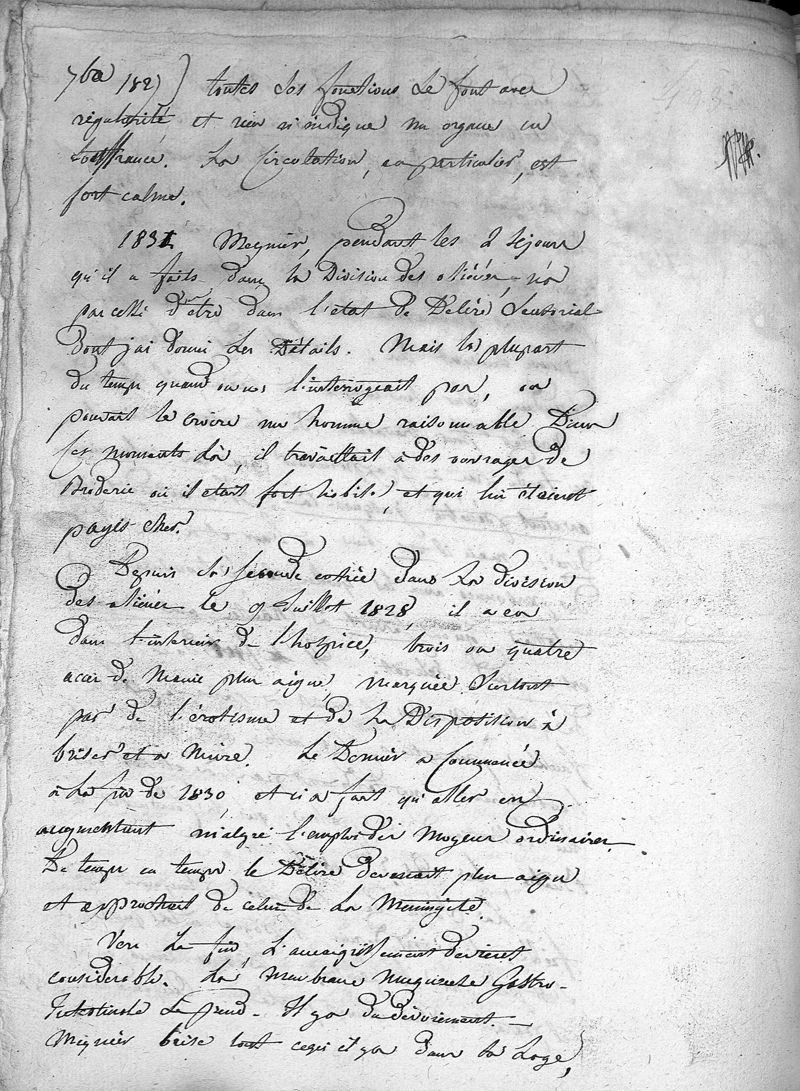 7bre 1827) toutes ses fonctions se font avec
régularité et rien n'indique un organe en
souffrance. La Circulation, en particulier, est
fort calme.
1831 Meynier, pendant les 2 séjours
qu'il a faits dans la Division des aliénés, n'a
pas cessé d'être dans l'état de Délire Sensorial
Dont j'ai donné les Détails. Mais la plupart
du temps quand on ne l'interrogeait pas, on
pouvait le croire un homme raisonnable Dans
ses moments là, il travaillait à des ouvrages de
Broderie où il était fort habile, et qui lui étaient
payés cher.
Depuis sa seconde entrée dans la division
des aliénés le 9 Juillot 1828, il a eu
dans l'intérieur de l'hospice, trois ou quatre
accès de Manie plus aiguë, marquée Surtout
par de l'érotisme et de la Disposition à
briser et a nuire. Le Dernier a Commencé
à la fin de 1830, et n'a fait qu'aller en
augmentant malgré l'emploi des Moyens ordinaires
De temps en temps le Délire devenait plus aigu
et approchait de celui de la Meningite.
Vers la fin, L'amaigrissement devient
considerable. La Membrane Muqueuse Gastro-
Intestinale se prend. Il y a du dévoiement.
Meynier brise tout ce qu'il y a dans sa Loge,